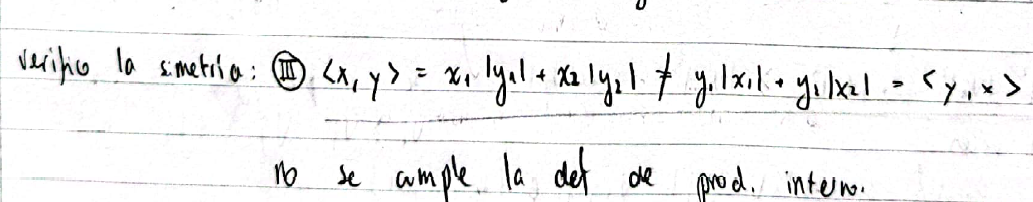 verifico la simetría: (III) <x, y> = x₁ |y₁| + x₂ |y₂| ≠ y₁ |x₁| + y₂ |x₂| = <y, x>
no se cumple la def de prod. interno.